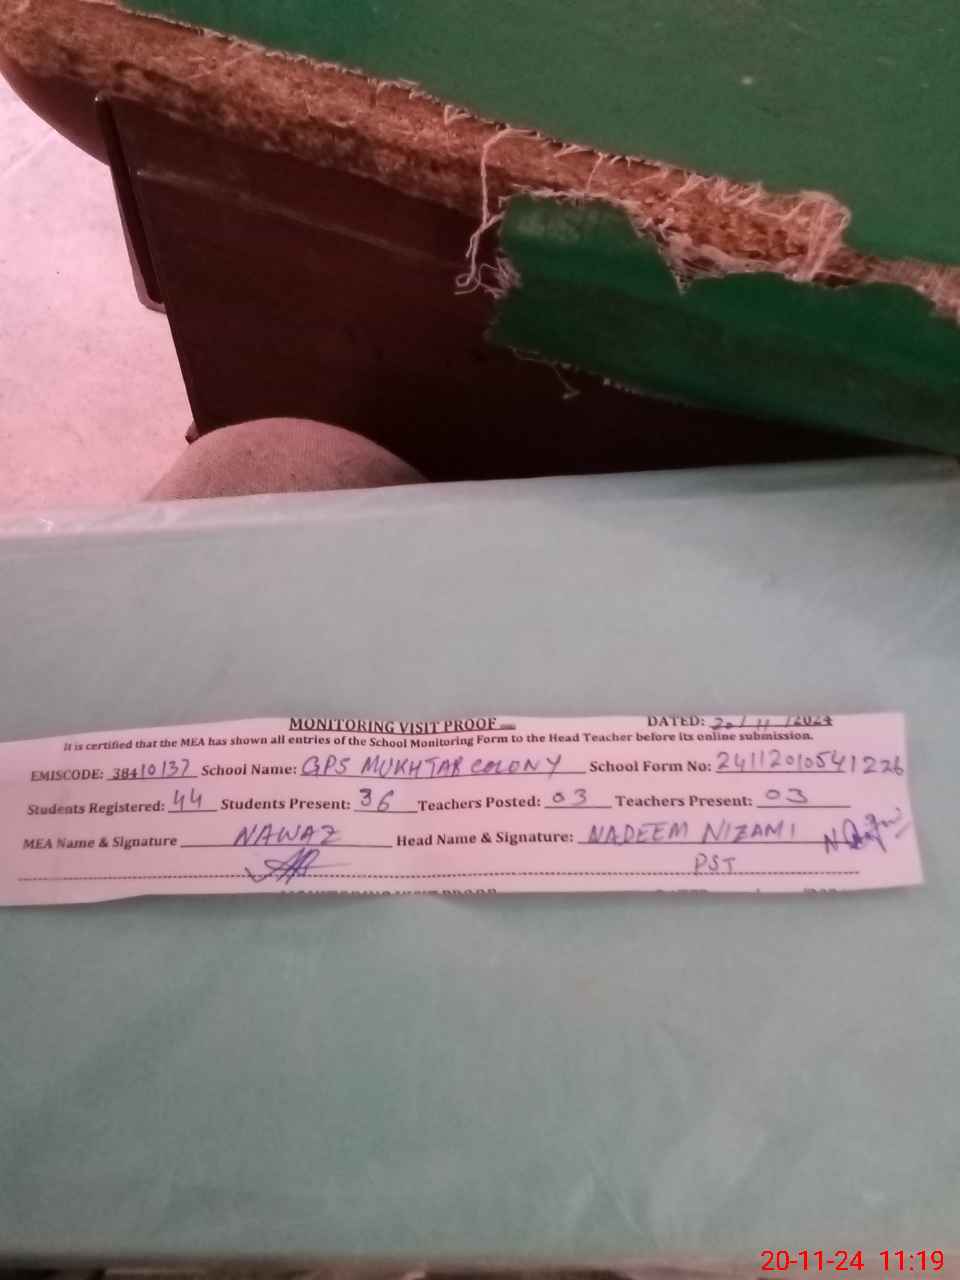 MONITORING VISIT PROOF
DATED: 20/11/2024
It is certified that the MEA has shown all entries of the School Monitoring Form to the Head Teacher before its online submission.
EMISCODE: 38410137 School Name: GPS MUKHTAR COLONY School Form No: 24112010541226
Students Registered: 44 Students Present: 36 Teachers Posted: 03 Teachers Present: 03
MEA Name & Signature NAWAZ Head Name & Signature: NADEEM NIZAMI
PST
20-11-24 11:19